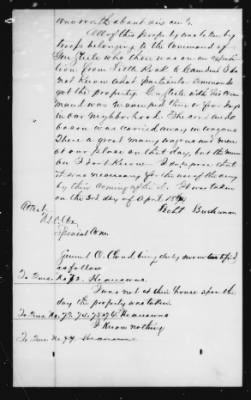 was worth about six cents.
All of this property was taken by
troops belonging to the command of
Gen Steele who there was on an expedition
from Little Rock to Camden I do
not know what particular command
got the property. Gen Steele with his command
was in camp three or four days
in our neighborhood. The corn and
bacon was carried away in wagons
There a great many wagons and men
at our place on that day, but the
I don't know I suppose that
it was necessary for the use of the army
by their coming after it. It was taken
on the 3rd day of April 1864
Attest Robt Buchanan
Special Com
being duly sworn testified
as follows
To Ques. No 72. He answers
I was not at their house upon the
day the property was taken
To Ques. Nos. 73. 74. 75. 76. He answers
I know nothing
To Ques. No. 77. He answers